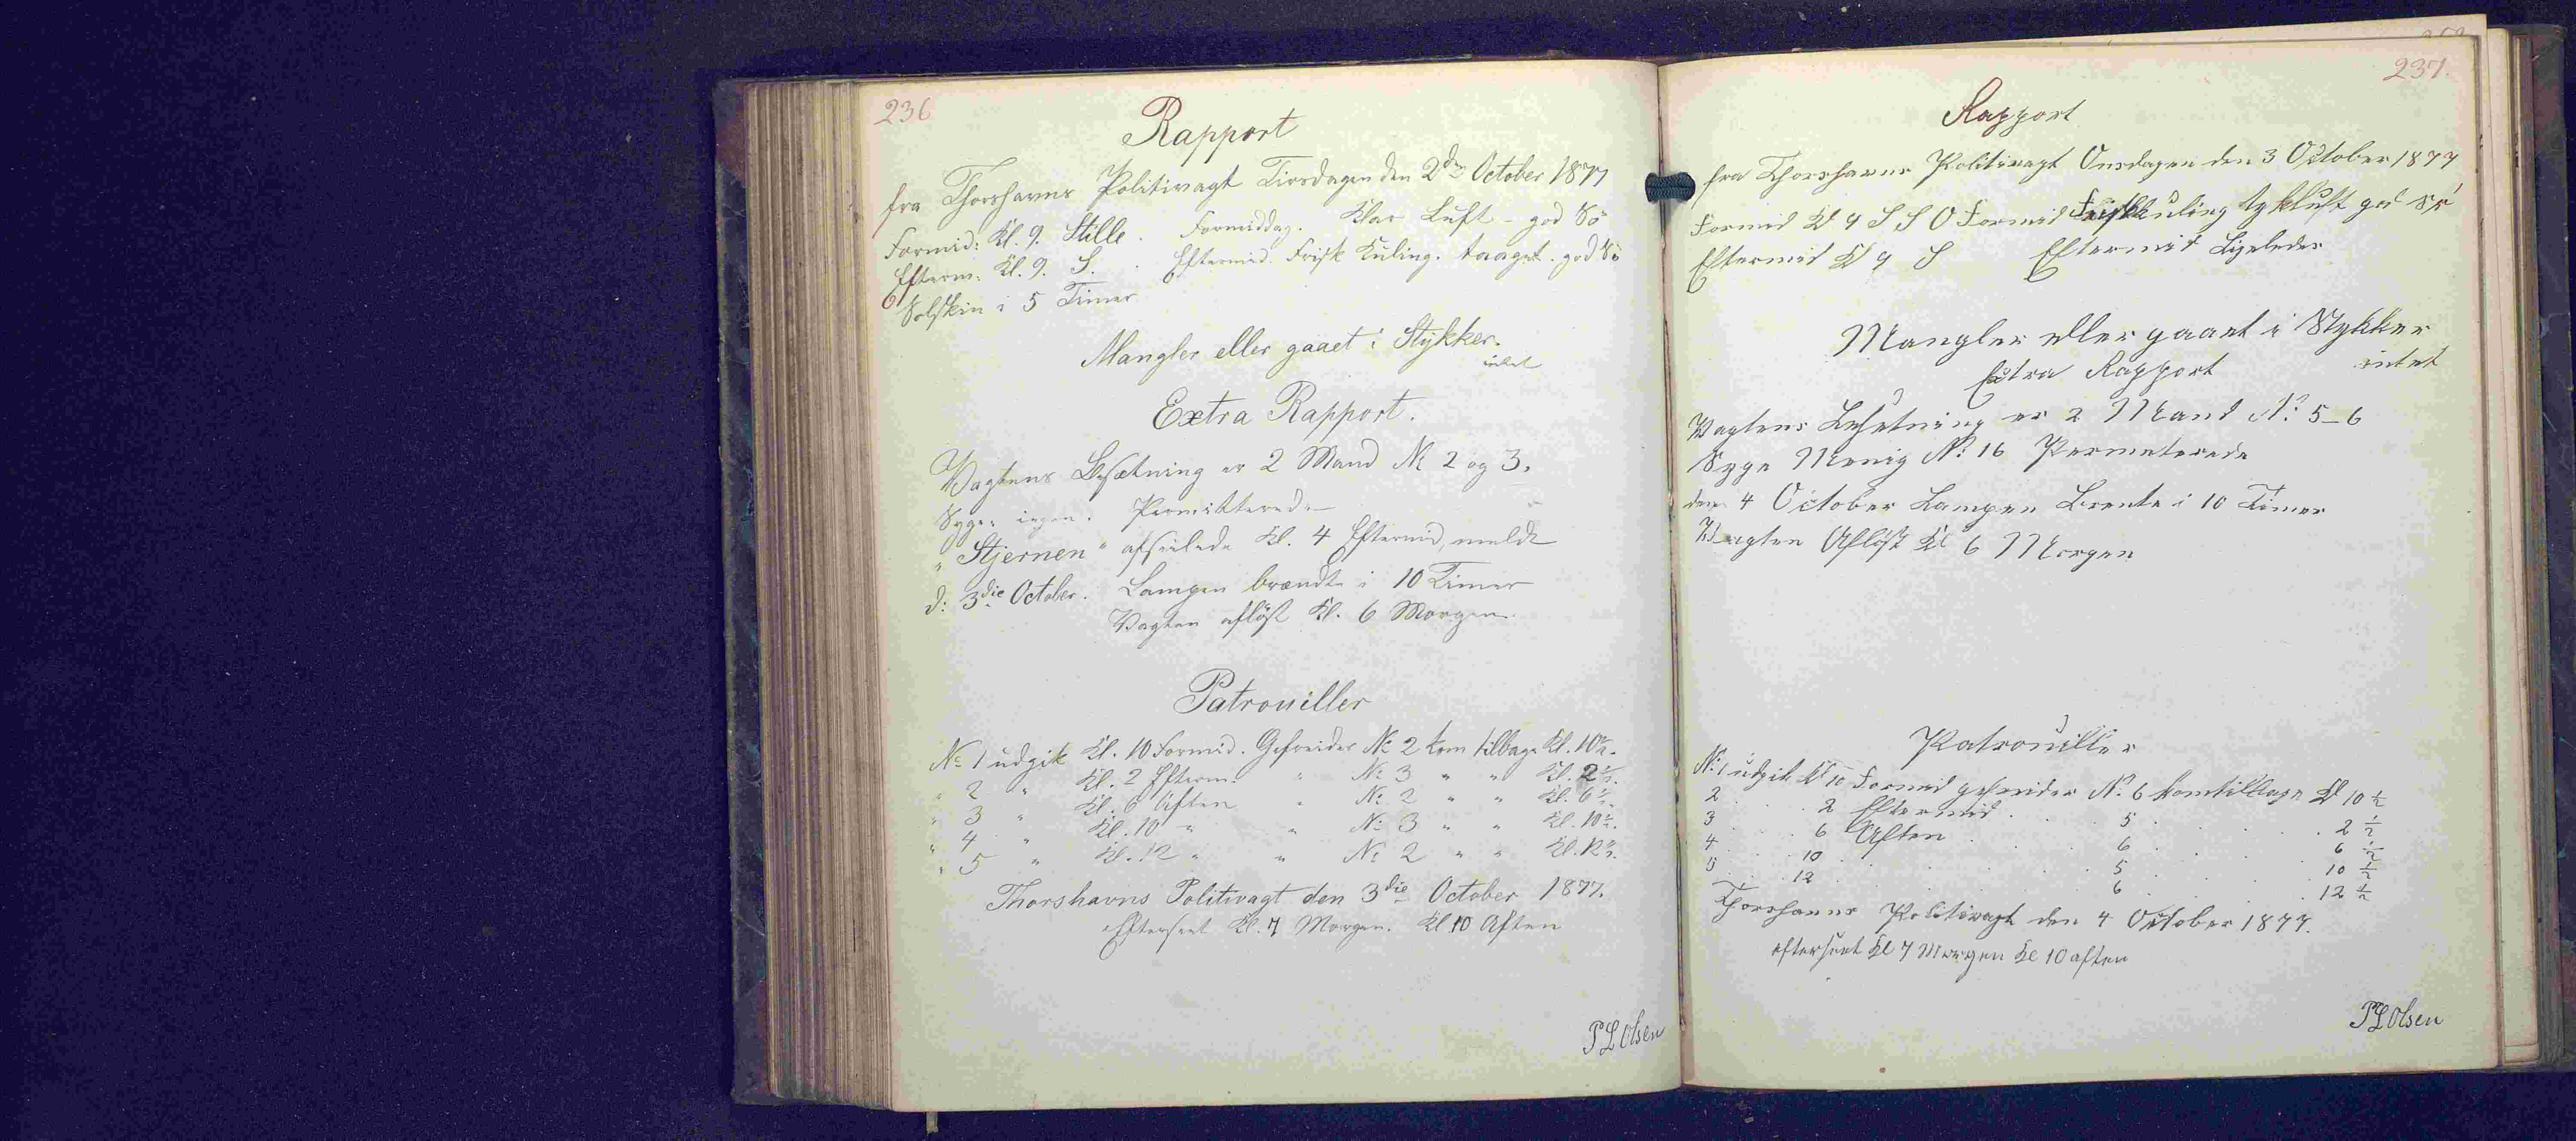 236
Rapport
fra Thorshavns Politivagt Tirsdagen den 2den October 1877
Formid: Kl. 9. Stille. Formiddag. Klar Luft - god Sö
Efterm. Kl. 9. S. Eftermid. Frisk Kuling. taaget. god Sö
Solskin i 5 Timer
Mangler eller gaaet i Stykker.
intet
Extra Rapport.
Vagtens Besætning er 2 Mand № 2 og 3.
Syge: ingen. Permitterede —
"Stjernen" afseilede Kl. 4 Eftermid, meldt
d: 3die October. Lampen brændte i 10 Timer
Vagten aflöst Kl. 6 Morgen.
Patrouiller
№ 1 udgik Kl. 10 Formid. Gefreider № 2 kom tilbage Kl. 10½.
" 2 " Kl. 2 Efterm. " № 3 " " Kl. 2½.
" 3 " Kl. 6 Aften " № 2 " " Kl. 6½.
" 4 " Kl. 10 " " № 3 " " Kl. 10½.
" 5 " Kl. 12 " " № 2 " " Kl. 12½.
Thorshavns Politivagt den 3die October 1877.
Efterseet Kl. 7 Morgen. Kl. 10 Aften
P L Olsen
237.
Rapport
fra Thorshavns Politivagt Onsdagen den 3 October 1877
Formid Kl 9 S S O Formid Frisk Kuling tykluft god Sö
Eftermid Kl 9 S Eftermid Ligeledes
Mangler eller gaaet i Stykker
intet
Extra Rapport
Vagtens Besetning er 2 Mand № 5-6
Syge Menig № 16 Permeterede
den 4 October Lampen Brente i 10 Timer
Vagten Aflöst Kl 6 Morgen
Patrouiller
№ 1 udgik Kl 10 Formid gefreider № 6 kom tilbage Kl 10½
2 . . 2 Eftermid . . 5 . . 2½
3 . . 6 Aften . . 6 . . 6½
4 . . 10 . . 5 . . 10½
5 . . 12 . . 6 . . 12½
Thorshavns Politivagt den 4 October 1877.
efterseet Kl 7 Morgen Kl 10 aften
P L Olsen